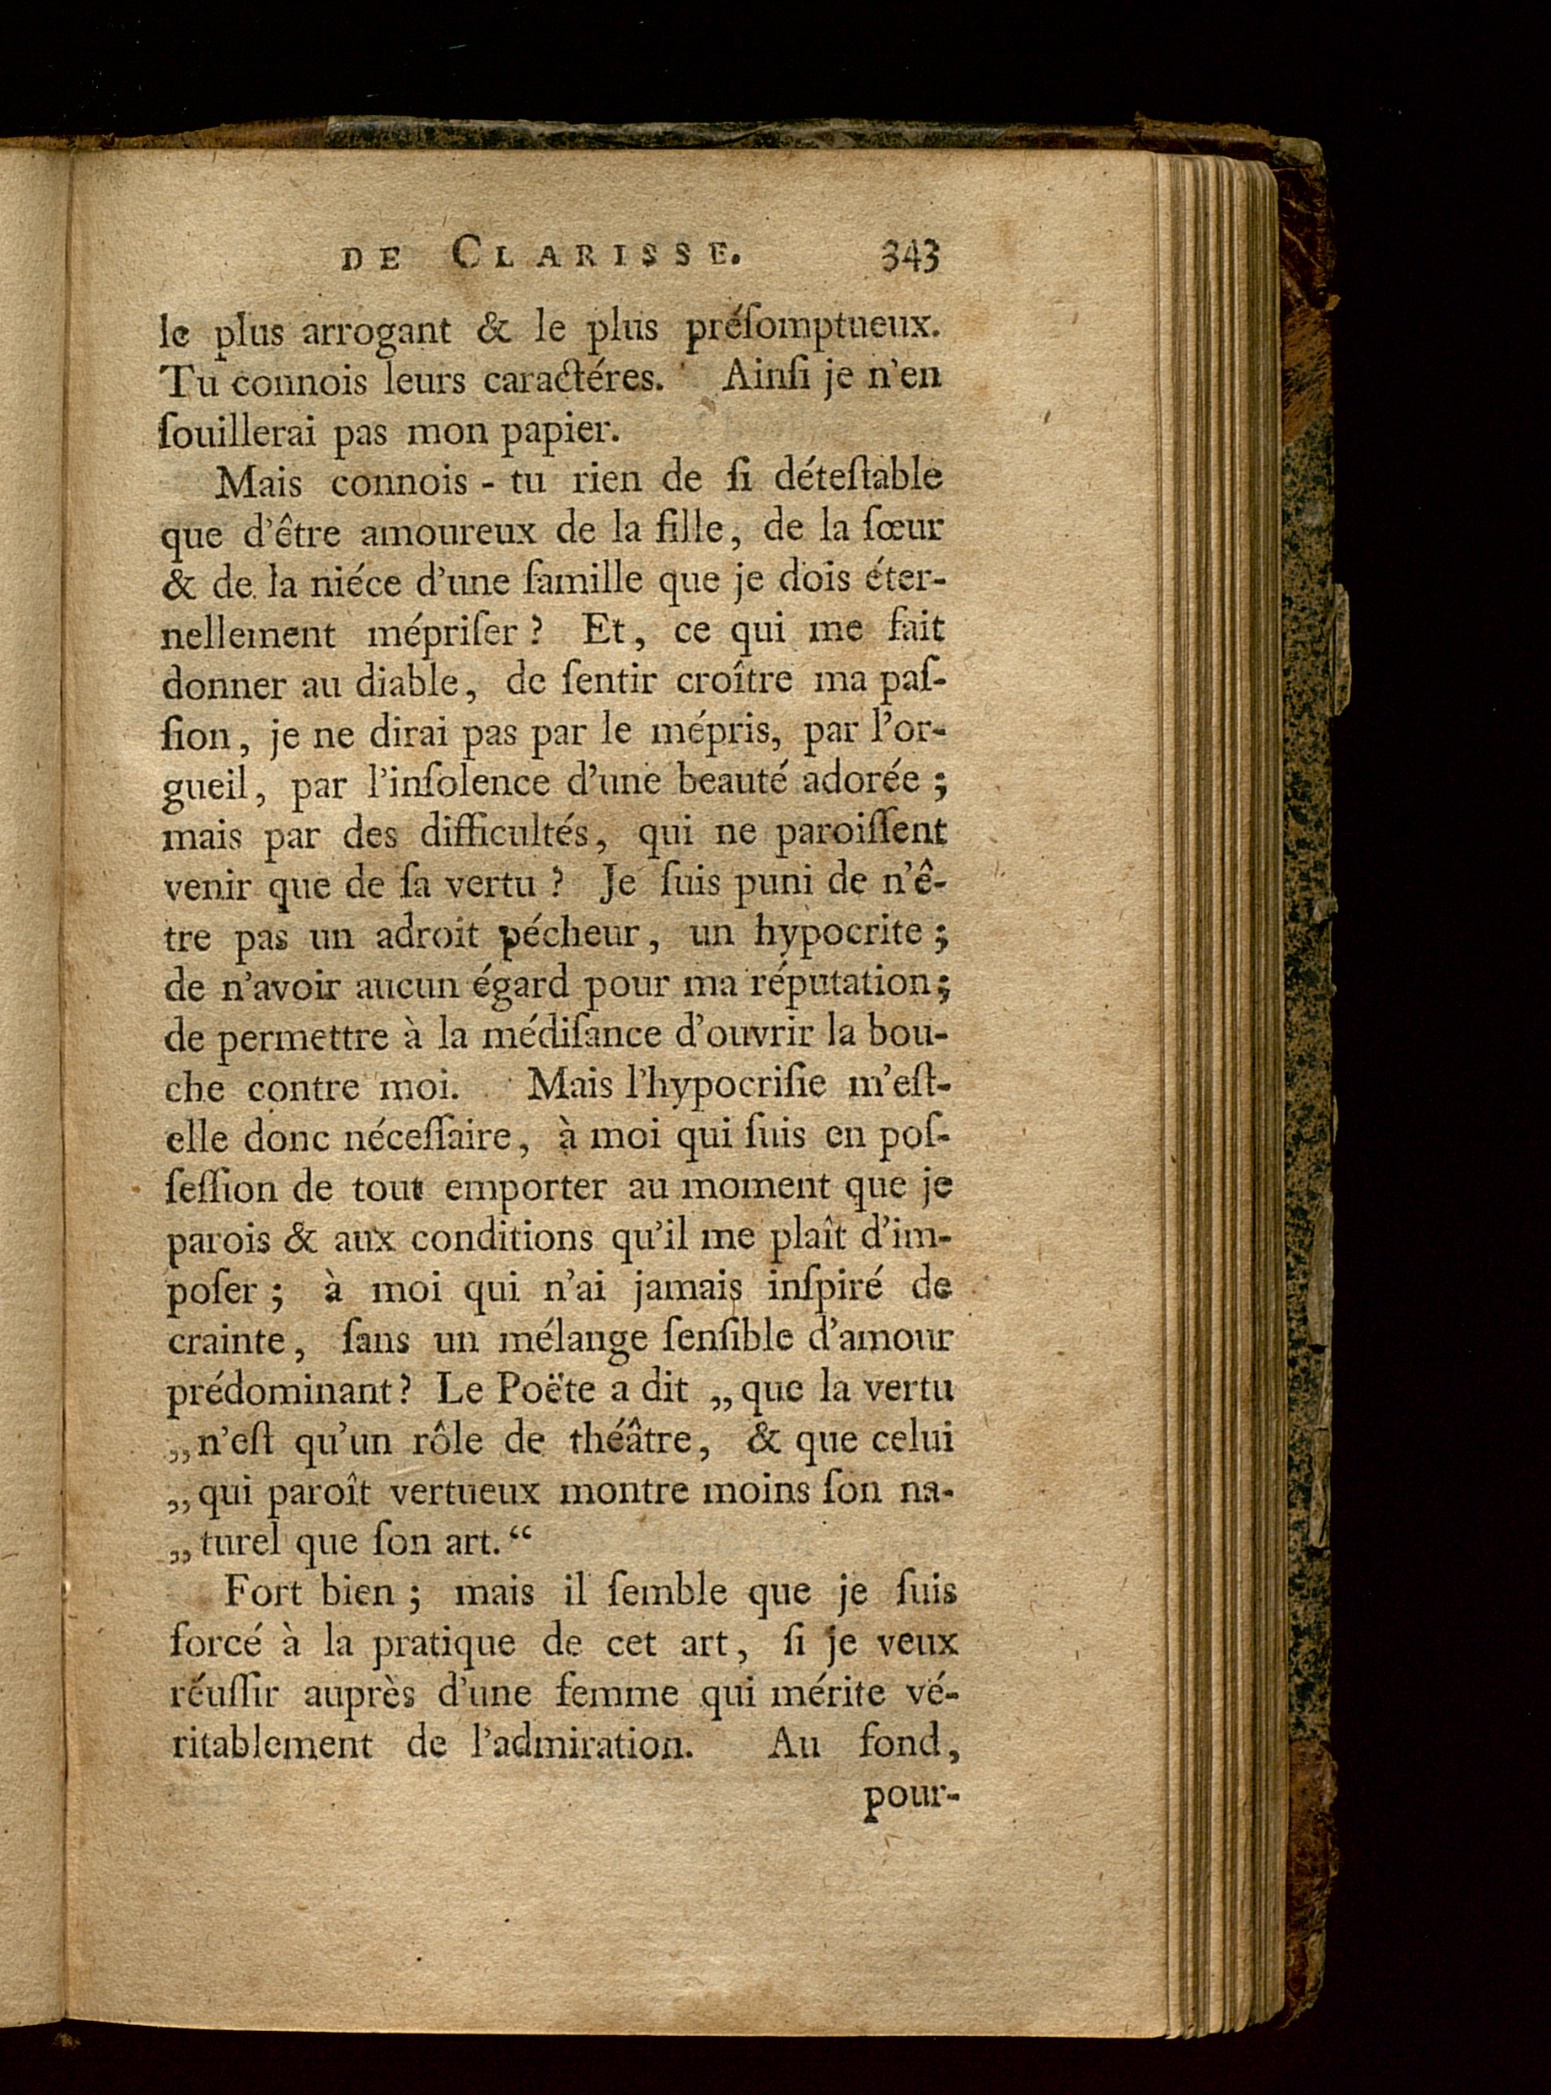 DE CLARISSE. 343
le plus arrogant & le plus préſomptueux.
Tu connois leurs caractéres. Ainſi je n'en
ſouillerai pas mon papier.
Mais connois - tu rien de ſi déteſtable
que d'être amoureux de la fille, de la ſœur
& de la niéce d'une famille que je dois éter-
nellement mépriſer? Et, ce qui me fait
donner au diable, de ſentir croître ma paſ-
ſion, je ne dirai pas par le mépris, par l'or-
gueil, par l'inſolence d'une beauté adorée;
mais par des difficultés, qui ne paroiſſent
venir que de ſa vertu? Je ſuis puni de n'ê-
tre pas un adroit pécheur, un hypocrite;
de n'avoir aucun égard pour ma réputation;
de permettre à la médiſance d'ouvrir la bou-
che contre moi. Mais l'hypocriſie m'eſt-
elle donc néceſſaire, à moi qui ſuis en poſ-
ſeſſion de tout emporter au moment que je
parois & aux conditions qu'il me plaît d'im-
poſer; à moi qui n'ai jamais inſpiré de
crainte, ſans un mélange ſenſible d'amour
prédominant? Le Poëte a dit „que la vertu
„n'eſt qu'un rôle de théâtre, & que celui
„qui paroît vertueux montre moins ſon na-
„turel que ſon art.“
Fort bien; mais il ſemble que je ſuis
forcé à la pratique de cet art, ſi je veux
réuſſir auprès d'une femme qui mérite vé-
ritablement de l'admiration. Au fond,
pour-